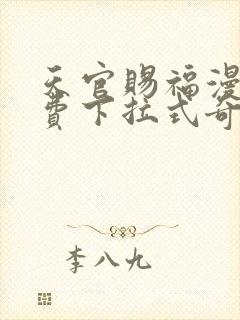 天官赐福漫
费下拉式奇
李八九